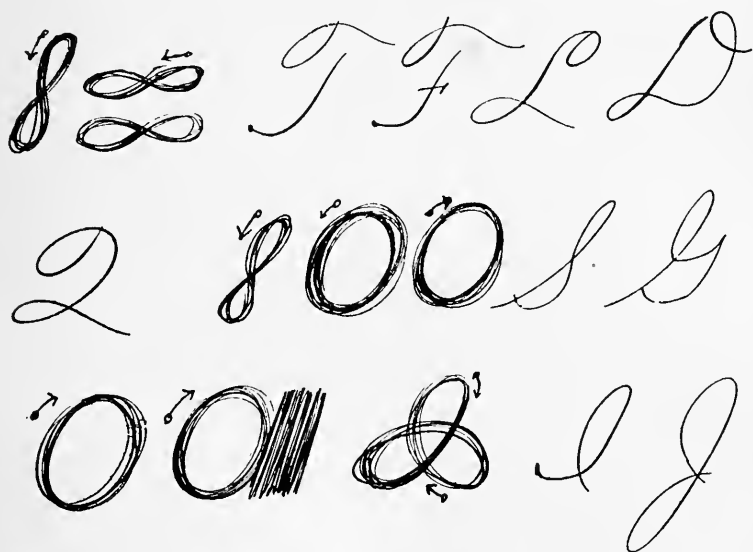 T F L D
Q S G
I J